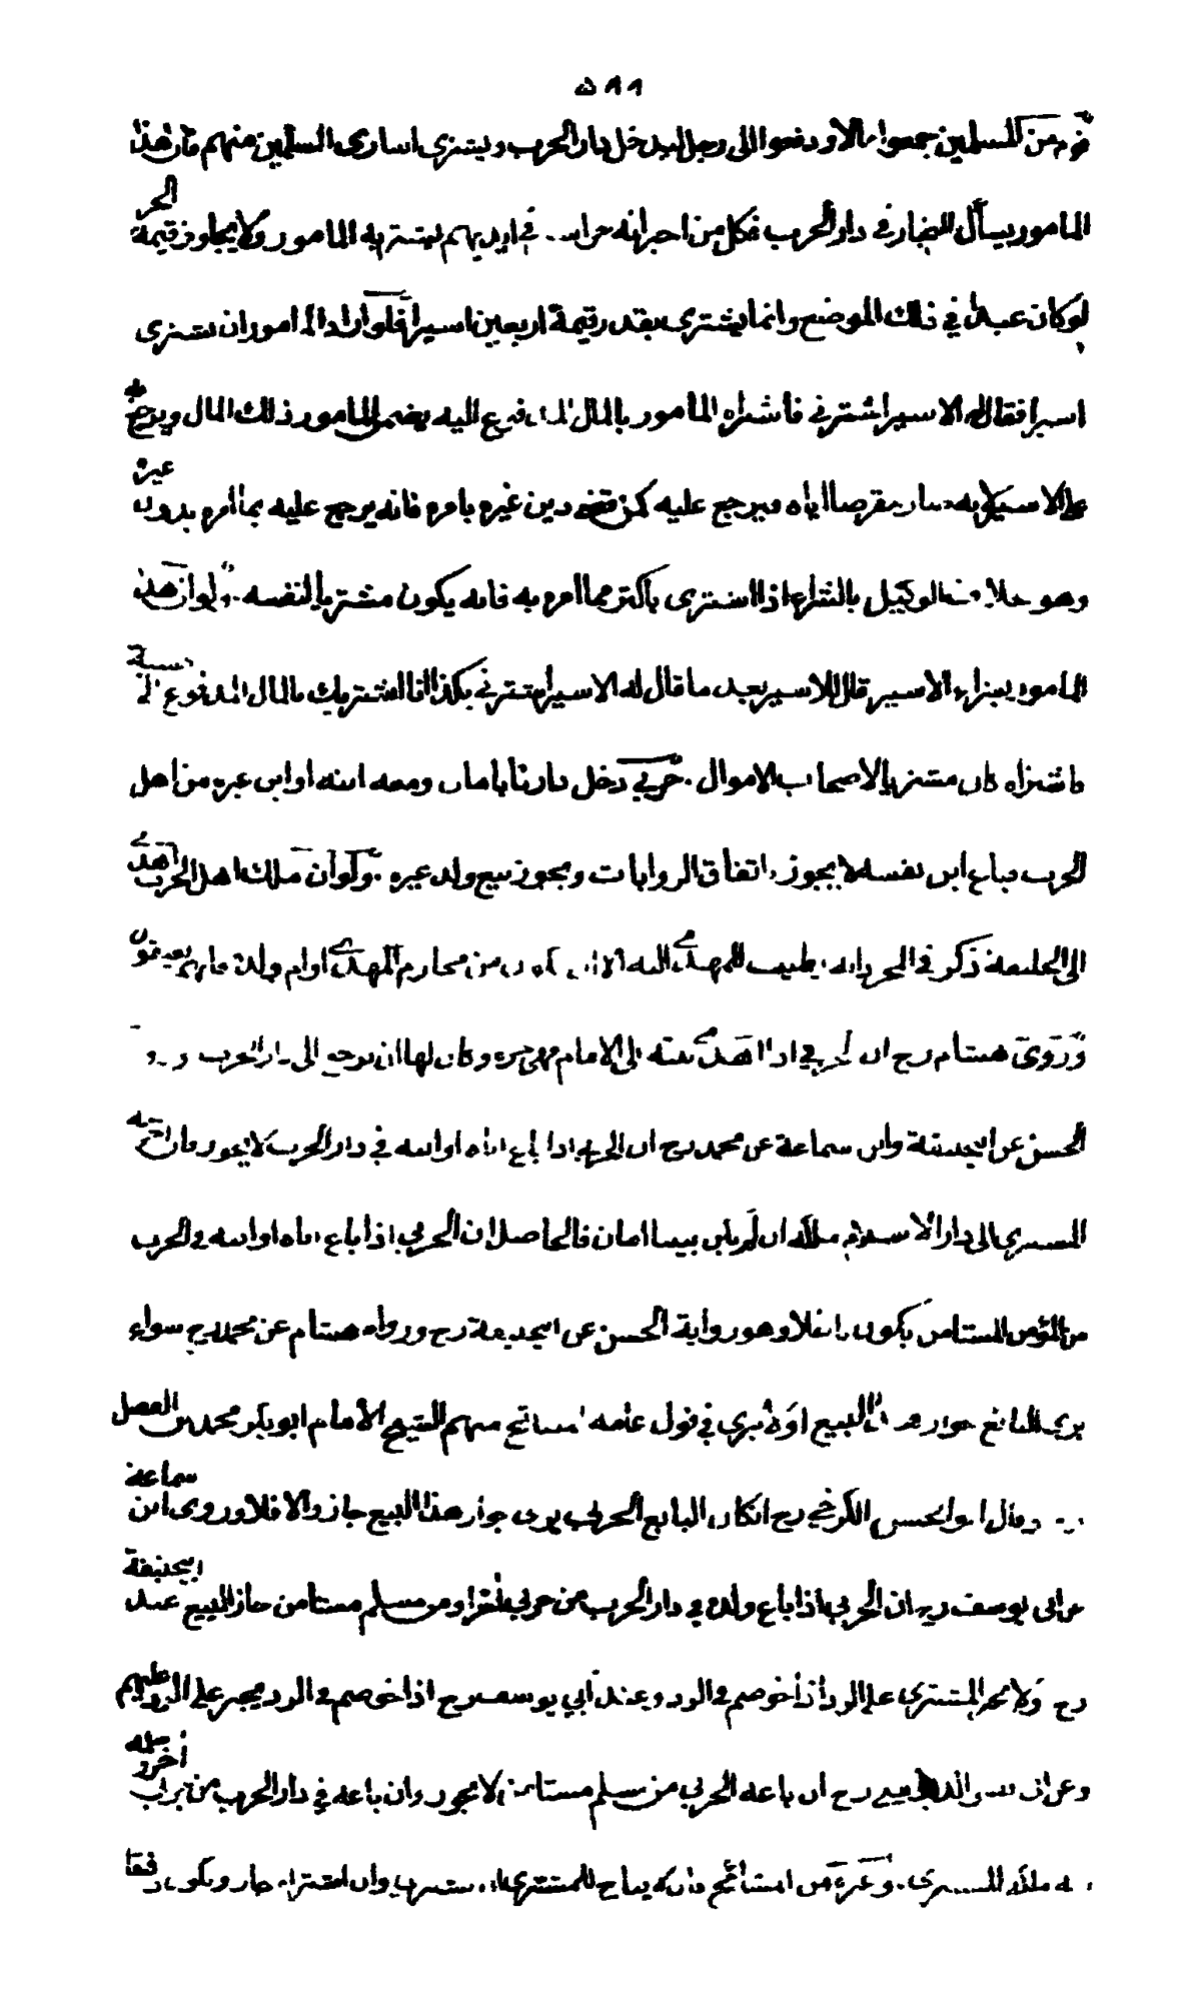 ٥٨٨
قوم من المسلمين جمعوا مالا ودفعوا الى رجل ليدخل دار الحرب ويشترى اسارى المسلمين منهم فان هذا
المامور يسأل التجار في دار الحرب فكل من اخبر انه حر اسير في ايديهم يشتريه المامور ولا يجاوز قيمة الحر
لو كان عبدا في ذلك الموضع وانما يشترى بقدر قيمة اربعين اسيرا فلو اراد المامور ان يشترى
اسيرا فقال له الاسير اشترني فاشتراه المامور بالمال الذى دفع اليه يضمن المامور ذلك المال ويرجع به
على الاسير لانه صار مقرضا اياه فيرجع عليه كمن قضى دين غيره بامره فانه يرجع عليه بما امره بدون غبن
وهو خلاف الوكيل بالشراء اذا اشترى باكثر مما امره به فانه يكون مشتريا لنفسه. ولو ان هذا
المامور بشراء الاسير قال للاسير بعد ما قال له الاسير اشترني بكذا انا اشتريك بالمال المدفوع الي حسبة
فاشتراه كان مشتريا لاصحاب الاموال. حربي دخل دارنا بامان ومعه ابنه او ابن غيره من اهل
الحرب فباع ابن نفسه لا يجوز باتفاق الروايات ويجوز بيع ولد غيره. ولو ان ملك اهل الحرب اهدى
الى الخليفة ذكر في المجرد انه يطيب للمهدى اليه الا ان يكون من محارم المهدى او ام ولده فانهم يعتقون
وروى هشام رح ان الحربي اذا اهدى بنته الى الامام فهي حرة وكان لها ان ترجع الى دار الحرب
الحسن عن ابيحنيفة وابن سماعة عن محمد رح ان الحربي اذا باع اباه او ابنه في دار الحرب لا يجوز فان اخرجه
المشترى الى دار الاسلام ملكه ان لم يكن بينهما امان فالحاصل ان الحربي اذا باع اباه او ابنه في الحرب
من المؤمن المستامن يكون باطلا وهو رواية الحسن عن ابيحنيفة رح ورواه هشام عن محمد رح سواء
يرى البائع جواز هذا البيع او لا يرى في قول عامة المشائخ منهم الشيخ الامام ابوبكر محمد بن الفضل
رح وقال ابو الحسن الكرخي رح ان كان البايع الحربي يرى جواز هذا البيع جاز والا فلا وروى ابن سماعة
عن ابي يوسف رح ان الحربي اذا باع ولده في دار الحرب من حربي اخر او من مسلم مستامن جاز البيع عند ابيحنيفة
رح ولا يجبر المشترى على الرد اذا خوصم في الرد وعند أبي يوسف رح اذا خوصم في الرد يجبر على الرد عليهم
وعن رح ان باعه الحربي من مسلم مستامن لا يجوز وان باعه في دار الحرب من حربي أخر
ملكه المشترى. وغيره من المشائخ فانه يباح للمشترى وان اشتراه جاز ويكون رقيقا